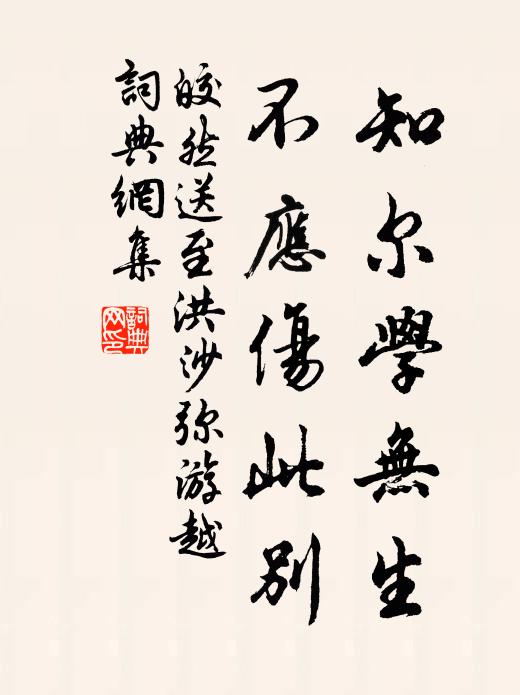 知尔學無生
不應傷此别
皎然送至洪沙弥游越
詞典網集
詞典网印